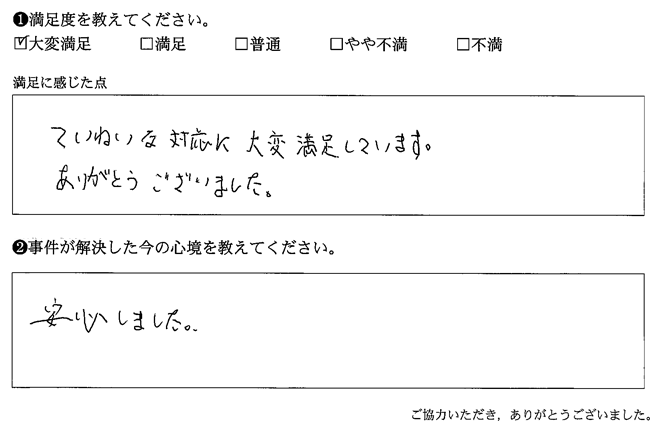 ❶満足度を教えてください。
☑大変満足 □満足 □普通 □やや不満 □不満
満足に感じた点
ていねいな対応に大変満足しています。
ありがとうございました。
❷事件が解決した今の心境を教えてください。
安心しました。
ご協力いただき，ありがとうございました。